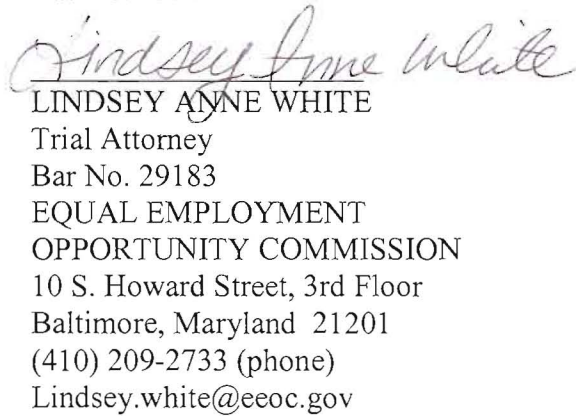 Lindsey Anne White
LINDSEY ANNE WHITE
Trial Attorney
Bar No. 29183
EQUAL EMPLOYMENT
OPPORTUNITY COMMISSION
10 S. Howard Street, 3rd Floor
Baltimore, Maryland 21201
(410) 209-2733 (phone)
Lindsey.white@eeoc.gov